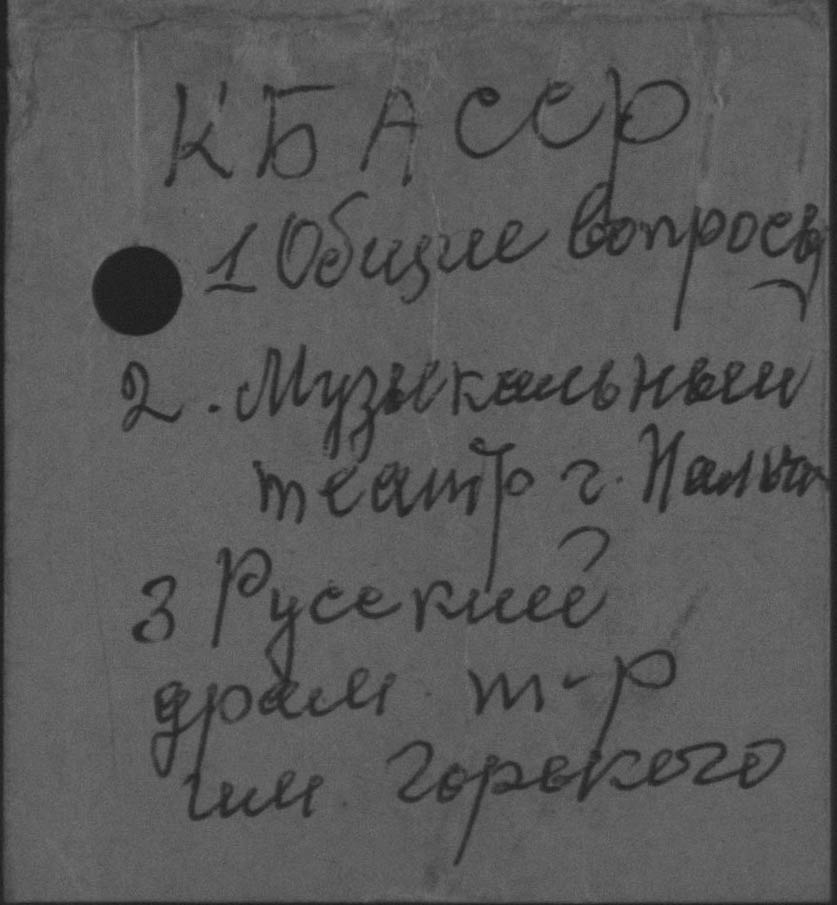 КБАССР
1 Общие вопросы
2. Музыкальный
театр г. Нальч
3 Русский
драм. т-р
им. Горького